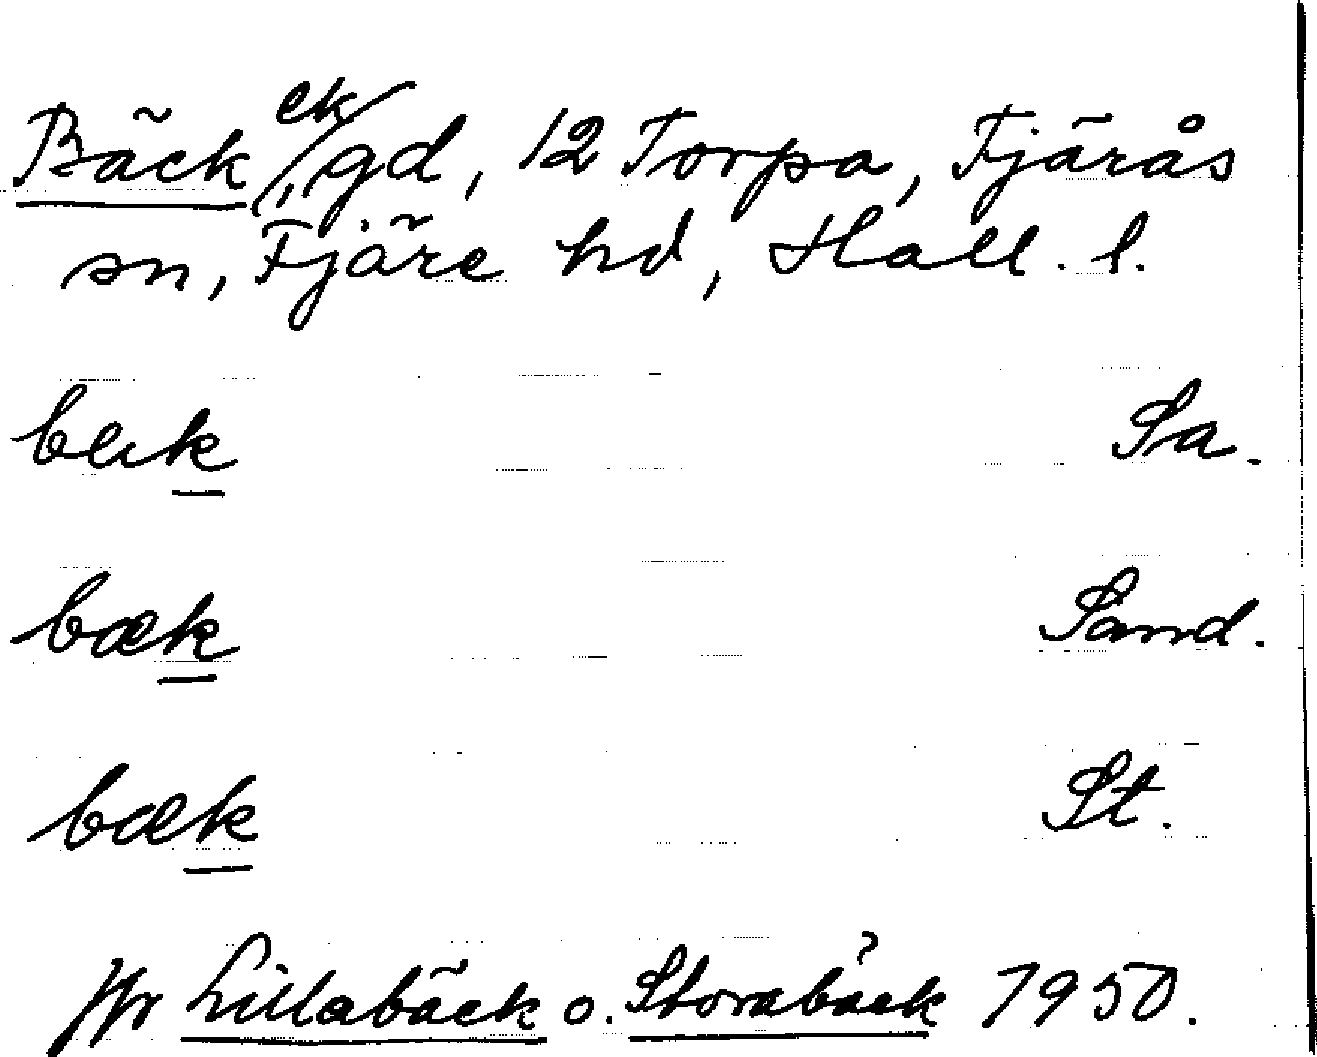 Bäck, ek/gd, 12 Torpa, Fjärås
sn, Fjäre hd, Hall. l.
bæk Sa.
bæk Sand.
bæk St.
Jfr Lillabäck o. Storabäck 1950.